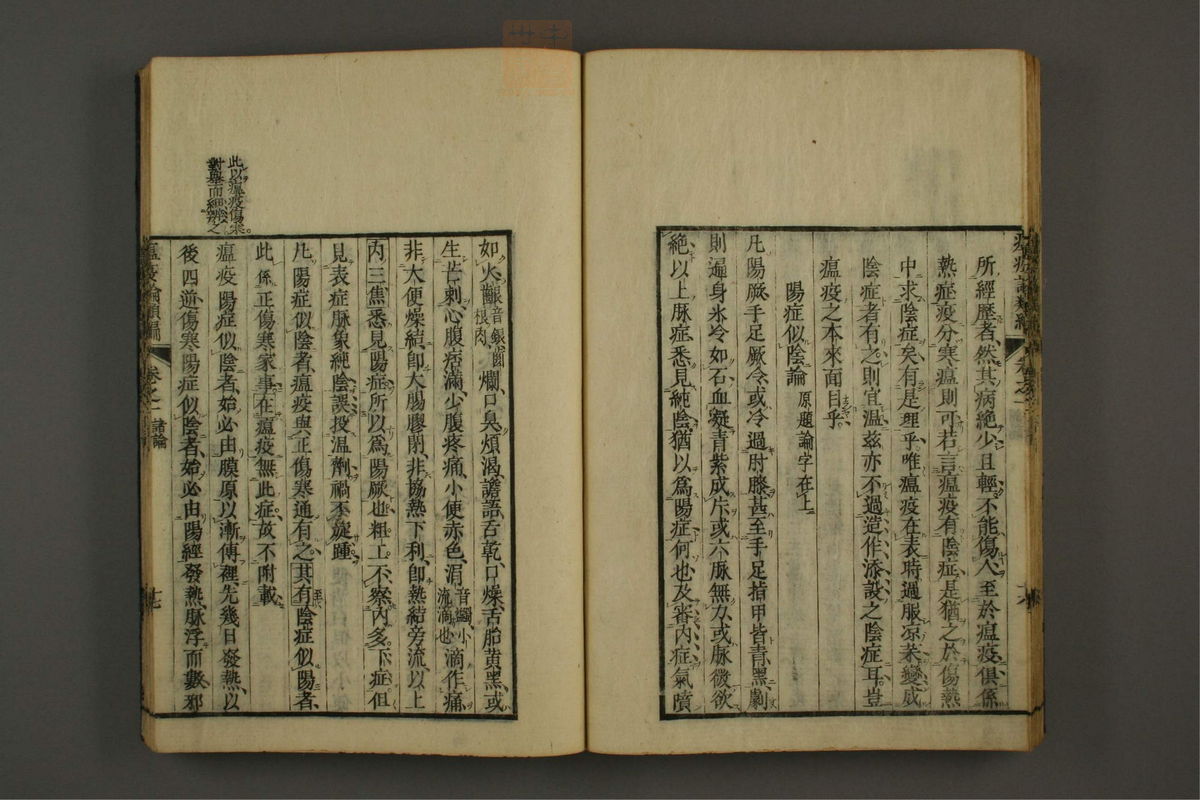 所經歷者然其病絶少且輕不能傷人至於瘟疫俱係
熱症疫分寒瘟則可若言瘟疫有陰症是猶之於傷熱
中求陰症矣有是理乎唯瘟疫在表時過服凉茶變成
陰症者有之則宜温兹亦不過造作添設之陰症耳豈
瘟疫之本來面目乎
陽症似陰論 原題論字在上
凡陽厥手足厥冷或冷過肘膝甚至手足指甲皆青黑劇
則遍身氷冷如石血凝青紫成斥或六脉無力或脉微欲
絶以上脉症悉見純陰猶以爲陽症何也及審内症氣噴
瘟疫論類編 卷之二 諸論 十七
如火齦音銀齒根肉爛口臭煩渴譫語舌乾口燥舌胎黄黑或
生芒刺心腹痞滿少腹疼痛小便赤色涓音蠲小流滴也滴作痛
非大便燥結即大腸膠閉非協熱下利即熱結旁流以上
内三焦悉見陽症所以爲陽厥也粗工不察内多下症但
見表症脉象純陰誤投温劑禍不旋踵
凡陽症似陰者瘟疫與正傷寒通有之其有陰症似陽者
此係正傷寒家事在瘟疫無此症故不附載
瘟疫陽症似陰者始必由膜原以漸傳裡先幾日發熱以
後四逆傷寒陽症似陰者始必由陽經發熱脉浮而數邪
此以瘟疫傷寒
對舉而細辨之